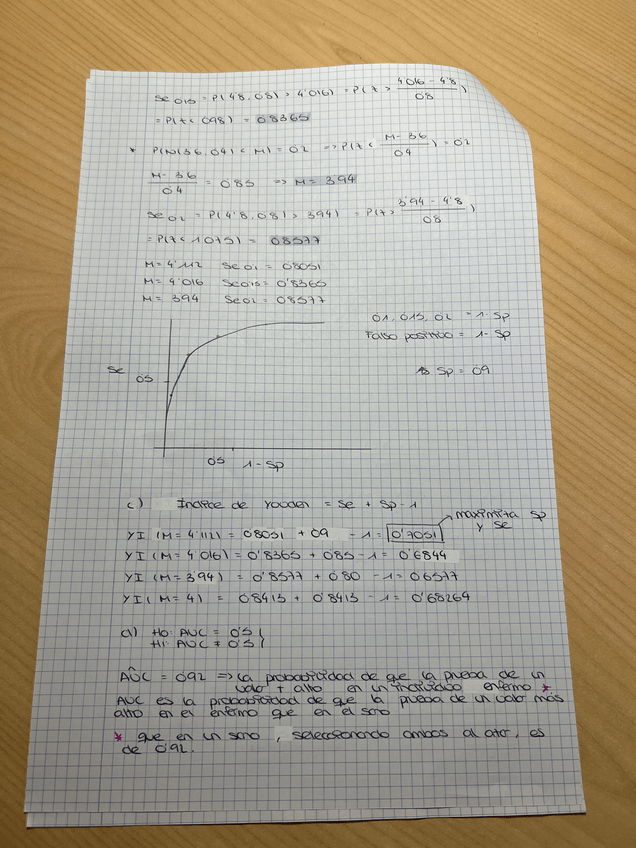 Se 0'15 = P( 4'8, 0'8) > 4'016) = P( z > 4'016 - 4'8 / 0'8 )
= P(z < 0'98) = 0'8365
* P(N(3'6, 0'4) < M) = 0'2 => P(z < M - 3'6 / 0'4 ) = 0'2
M - 3'6 / 0'4 = 0'85 => M = 3'94
Se 0'2 = P( 4'8, 0'8) > 3'94) = P(z > 3'94 - 4'8 / 0'8 )
= P(z < 1'075) = 0'8577
M = 4'112 Se 0'1 = 0'8051
M = 4'016 Se 0'15 = 0'8365
M = 3'94 Se 0'2 = 0'8577
0'1, 0'15, 0'2 = 1 - Sp
Falso positivo = 1 - Sp
Sp = 0'9
Se
0'5
0'5 1 - Sp
c) Indice de Youden = Se + Sp - 1
maximiza Sp
y Se
YI (M = 4'112) = 0'8051 + 0'9 - 1 = 0'7051
YI (M = 4'016) = 0'8365 + 0'85 - 1 = 0'6844
YI (M = 3'94) = 0'8577 + 0'80 - 1 = 0'6577
YI (M = 4) = 0'8413 + 0'8413 - 1 = 0'68264
d) H0: AUC = 0'5
H1: AUC ≠ 0'5
AÛC = 0'92 => La probabilidad de que la prueba de un
valor + alto en un individuo enfermo *
AUC es la probabilidad de que la prueba de un valor más
alto en el enfermo que en el sano
* que en un sano, seleccionando ambos al azar, es
de 0'92.